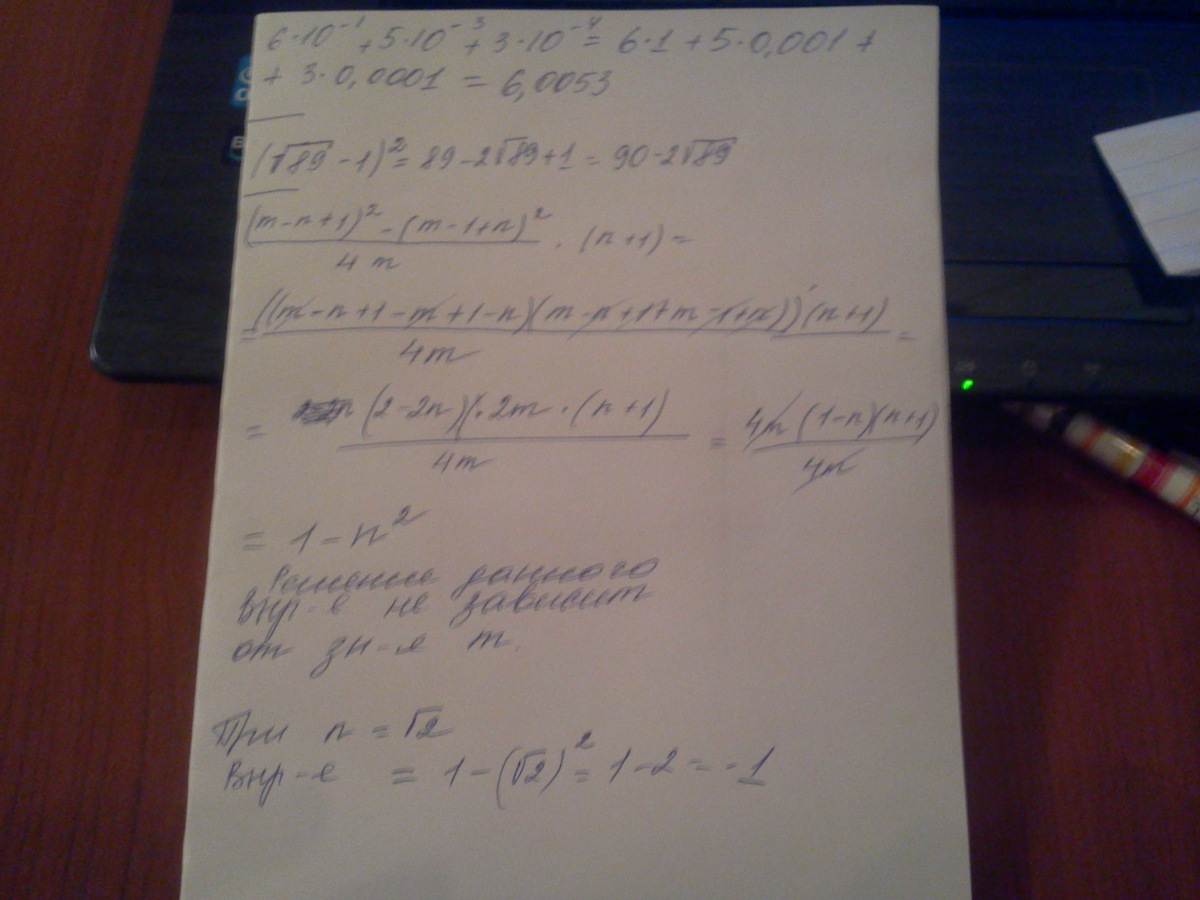 6·10⁻¹ + 5·10⁻³ + 3·10⁻⁴ = 6·1 + 5·0,001 +
+ 3·0,0001 = 6,0053
(√89 - 1)² = 89 - 2√89 + 1 = 90 - 2√89
((m-n+1)² - (m-1+n)²)/(4m) · (n+1) =
= ((m-n+1-m+1-n)(m-n+1+m-1+n))·(n+1)/(4m) =
= (2-2n)·2m·(n+1)/(4m) = 4m(1-n)(n+1)/(4m)
= 1-n²
Решение данного
выр-е не зависит
от зн-е m.
При n = √2
Выр-е = 1-(√2)² = 1-2 = -1